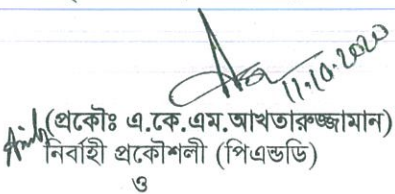 11.10.2020
(প্রকৌঃ এ.কে.এম.আখতারুজ্জামান)
নির্বাহী প্রকৌশলী (পিএন্ডডি)
ও